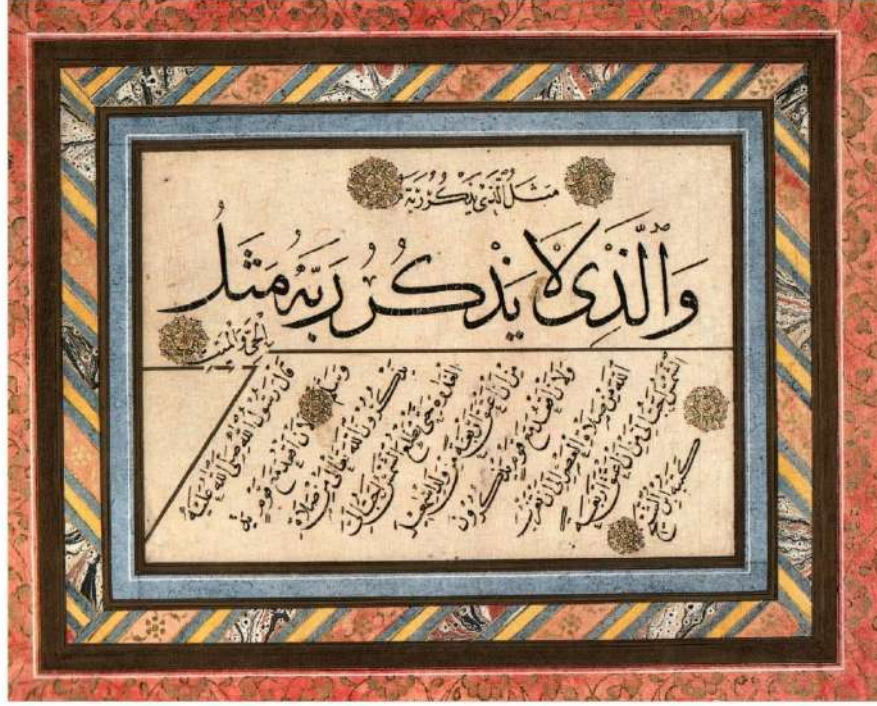 مَثَلُ الَّذِى يَذْكُرُ رَبَّهُ
وَالَّذِى لَا يَذْكُرُ رَبَّهُ مَثَلُ
الْحَىِّ وَالْمَيِّتِ
قَالَ رَسُولُ اللهِ صَلَّى اللهُ عَلَيْهِ
وَسَلَّمَ لَأَنْ أَقْعُدَ مَعَ قَوْمٍ
يَذْكُرُونَ اللهَ تَعَالَى مِنْ صَلَاةِ
الْغَدَاةِ حَتَّى تَطْلُعَ الشَّمْسُ أَحَبُّ إِلَىَّ
مِنْ أَنْ أُعْتِقَ أَرْبَعَةً مِنْ وَلَدِ إِسْمٰعِيلَ
وَلَأَنْ أَقْعُدَ مَعَ قَوْمٍ يَذْكُرُونَ
اللهَ مِنْ صَلَاةِ الْعَصْرِ إِلَى أَنْ تَغْرُبَ
الشَّمْسُ أَحَبُّ إِلَىَّ مِنْ أَنْ أُعْتِقَ أَرْبَعَةً
كَتَبَهُ ابْنُ الشَّيْخِ